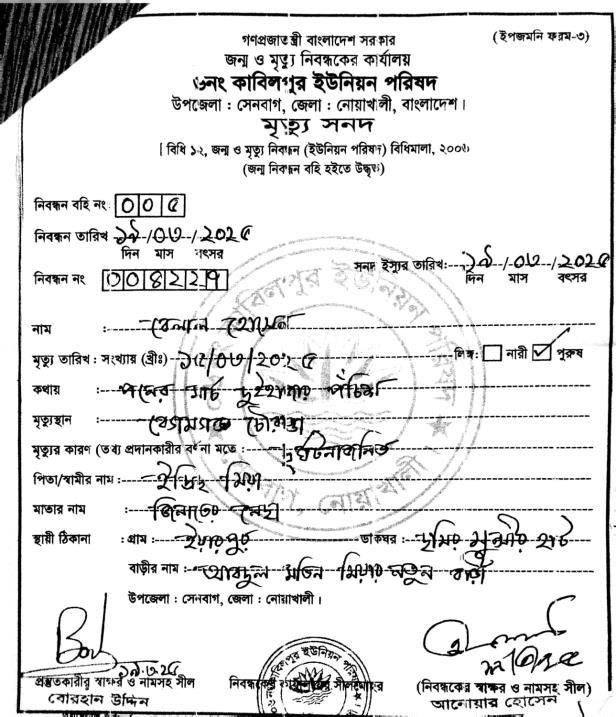 (ইপজমনি ফরম-৩)
গণপ্রজাতন্ত্রী বাংলাদেশ সরকার
জন্ম ও মৃত্যু নিবন্ধকের কার্যালয়
৬নং কাবিলপুর ইউনিয়ন পরিষদ
উপজেলা : সেনবাগ, জেলা : নোয়াখালী, বাংলাদেশ।
মৃত্যু সনদ
[ বিধি ১২, জন্ম ও মৃত্যু নিবন্ধন (ইউনিয়ন পরিষদ) বিধিমালা, ২০০৬)
(জন্ম নিবন্ধন বহি হইতে উদ্ধৃত)
নিবন্ধন বহি নং 0 0 ৫
নিবন্ধন তারিখ ১৯/০৩/২০২৫
দিন মাস বৎসর
সনদ ইস্যুর তারিখ: ১৯/০৩/২০২৫
দিন মাস বৎসর
নিবন্ধন নং
নাম : বেলাল হোসেন
মৃত্যু তারিখ : সংখ্যায় (খ্রীঃ) ১৫/০৩/২০২৫
লিঙ্গ: নারী পুরুষ
কথায় পনের মার্চ দুইহাজার পঁচিশ
মৃত্যুস্থান বেগমগঞ্জ চৌরাস্তা
মৃত্যুর কারণ (তথ্য প্রদানকারীর বর্ণনা মতে : দুর্ঘটনাজনিত
পিতা/স্বামীর নাম : ইদ্রিছ মিয়া
মাতার নাম : জিনাতের নেছা
স্থায়ী ঠিকানা : গ্রাম : ইয়ারপুর ডাকঘর : ছমির মুন্সীর হাট
বাড়ীর নাম : আবদুল মতিন মিয়ার নতুন বাড়ী
উপজেলা : সেনবাগ, জেলা : নোয়াখালী।
১৯.৩.২৫
প্রস্তুতকারীর স্বাক্ষর ও নামসহ সীল
বোরহান উদ্দিন
নিবন্ধকের কার্যালয়ের সীলমোহর
(নিবন্ধকের স্বাক্ষর ও নামসহ সীল)
আনোয়ার হোসেন